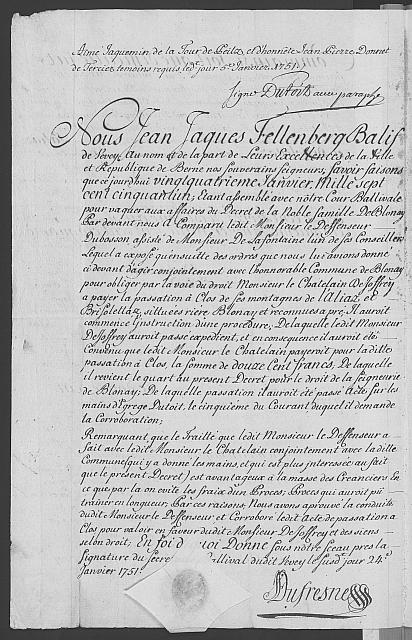 Aimé Jaquemin de la Tour de Peilz, et d'honnête Jean Pierre Donnet
de Terciez temoins requis led. jour 5e Janvier 1751.
Signé Dutoit avec paraphe
Nous Jean Jaques Fellenberg Balif
de Vevey, Au nom & de la part de Leurs Excellences de la Ville
et Republique de Berne nos souverains seigneurs, savoir faisons
que ce jourd'hui vingtquatrieme Janvier Mille sept
cent cinquant'un, Etant assemblé avec nôtre Cour Ballivale
pour vaquer aux affaires du Decret de la Noble famille De Blonay
Par devant nous a Comparu ledit Monsieur le Deffenseur
Dubosson assisté de Monsieur De Lafontaine l'un de ses Conseillers
Lequel a exposé qu'ensuitte des ordres que nous lui avions donné
ci devant d'agir conjointement avec l'honnorable Commune de Blonay
pour obliger par la voie du droit Monsieur le Chatelain De Joffrey
a payer la passation à Clos de ses montagnes de l'Aliaz et
Brisotellaz, situées riére Blonay et reconnues a pré, Il auroit
commencé l'instruction d'une procedure, De laquelle ledit Monsieur
De Joffrey auroit passé expedient, et en consequence il auroit été
Convenu que ledit Monsieur le Chatelain payeroit pour la ditte
passation à Clos, la somme de douze Cent francs, De laquelle
il revient le quart au present Decret pour le droit de la seigneurie
de Blonay; De laquelle passation il auroit été passé Acte, sur les
mains d'Egrege Dutoit, le cinquieme du Courant duquel il demande
la Corroboration;
Remarquant que le Traitté que ledit Monsieur le Deffenseur a
fait avec ledit Monsieur le Chatelain conjointement avec la ditte
Commune (qui y a donné les mains, et qui est plus interessée au fait
que le present Decret) est avantageux à la masse des Creanciers En
ce que par là on evite les fraix d'un Procès, Procès qui auroit pû
trainer en longueur, Par ces raisons, Nous avons aprouvé la conduitte
dudit Monsieur le Deffenseur et Corroboré ledit Acte de passation a
Clos pour valoir en faveur dudit Monsieur De Joffrey et des siens
selon droit, En foi d' uoi Donné sous nôtre sceau pres la
signature du Secre llival dudit Vevey le susd. jour 24e
Janvier 1751.
Dufresne